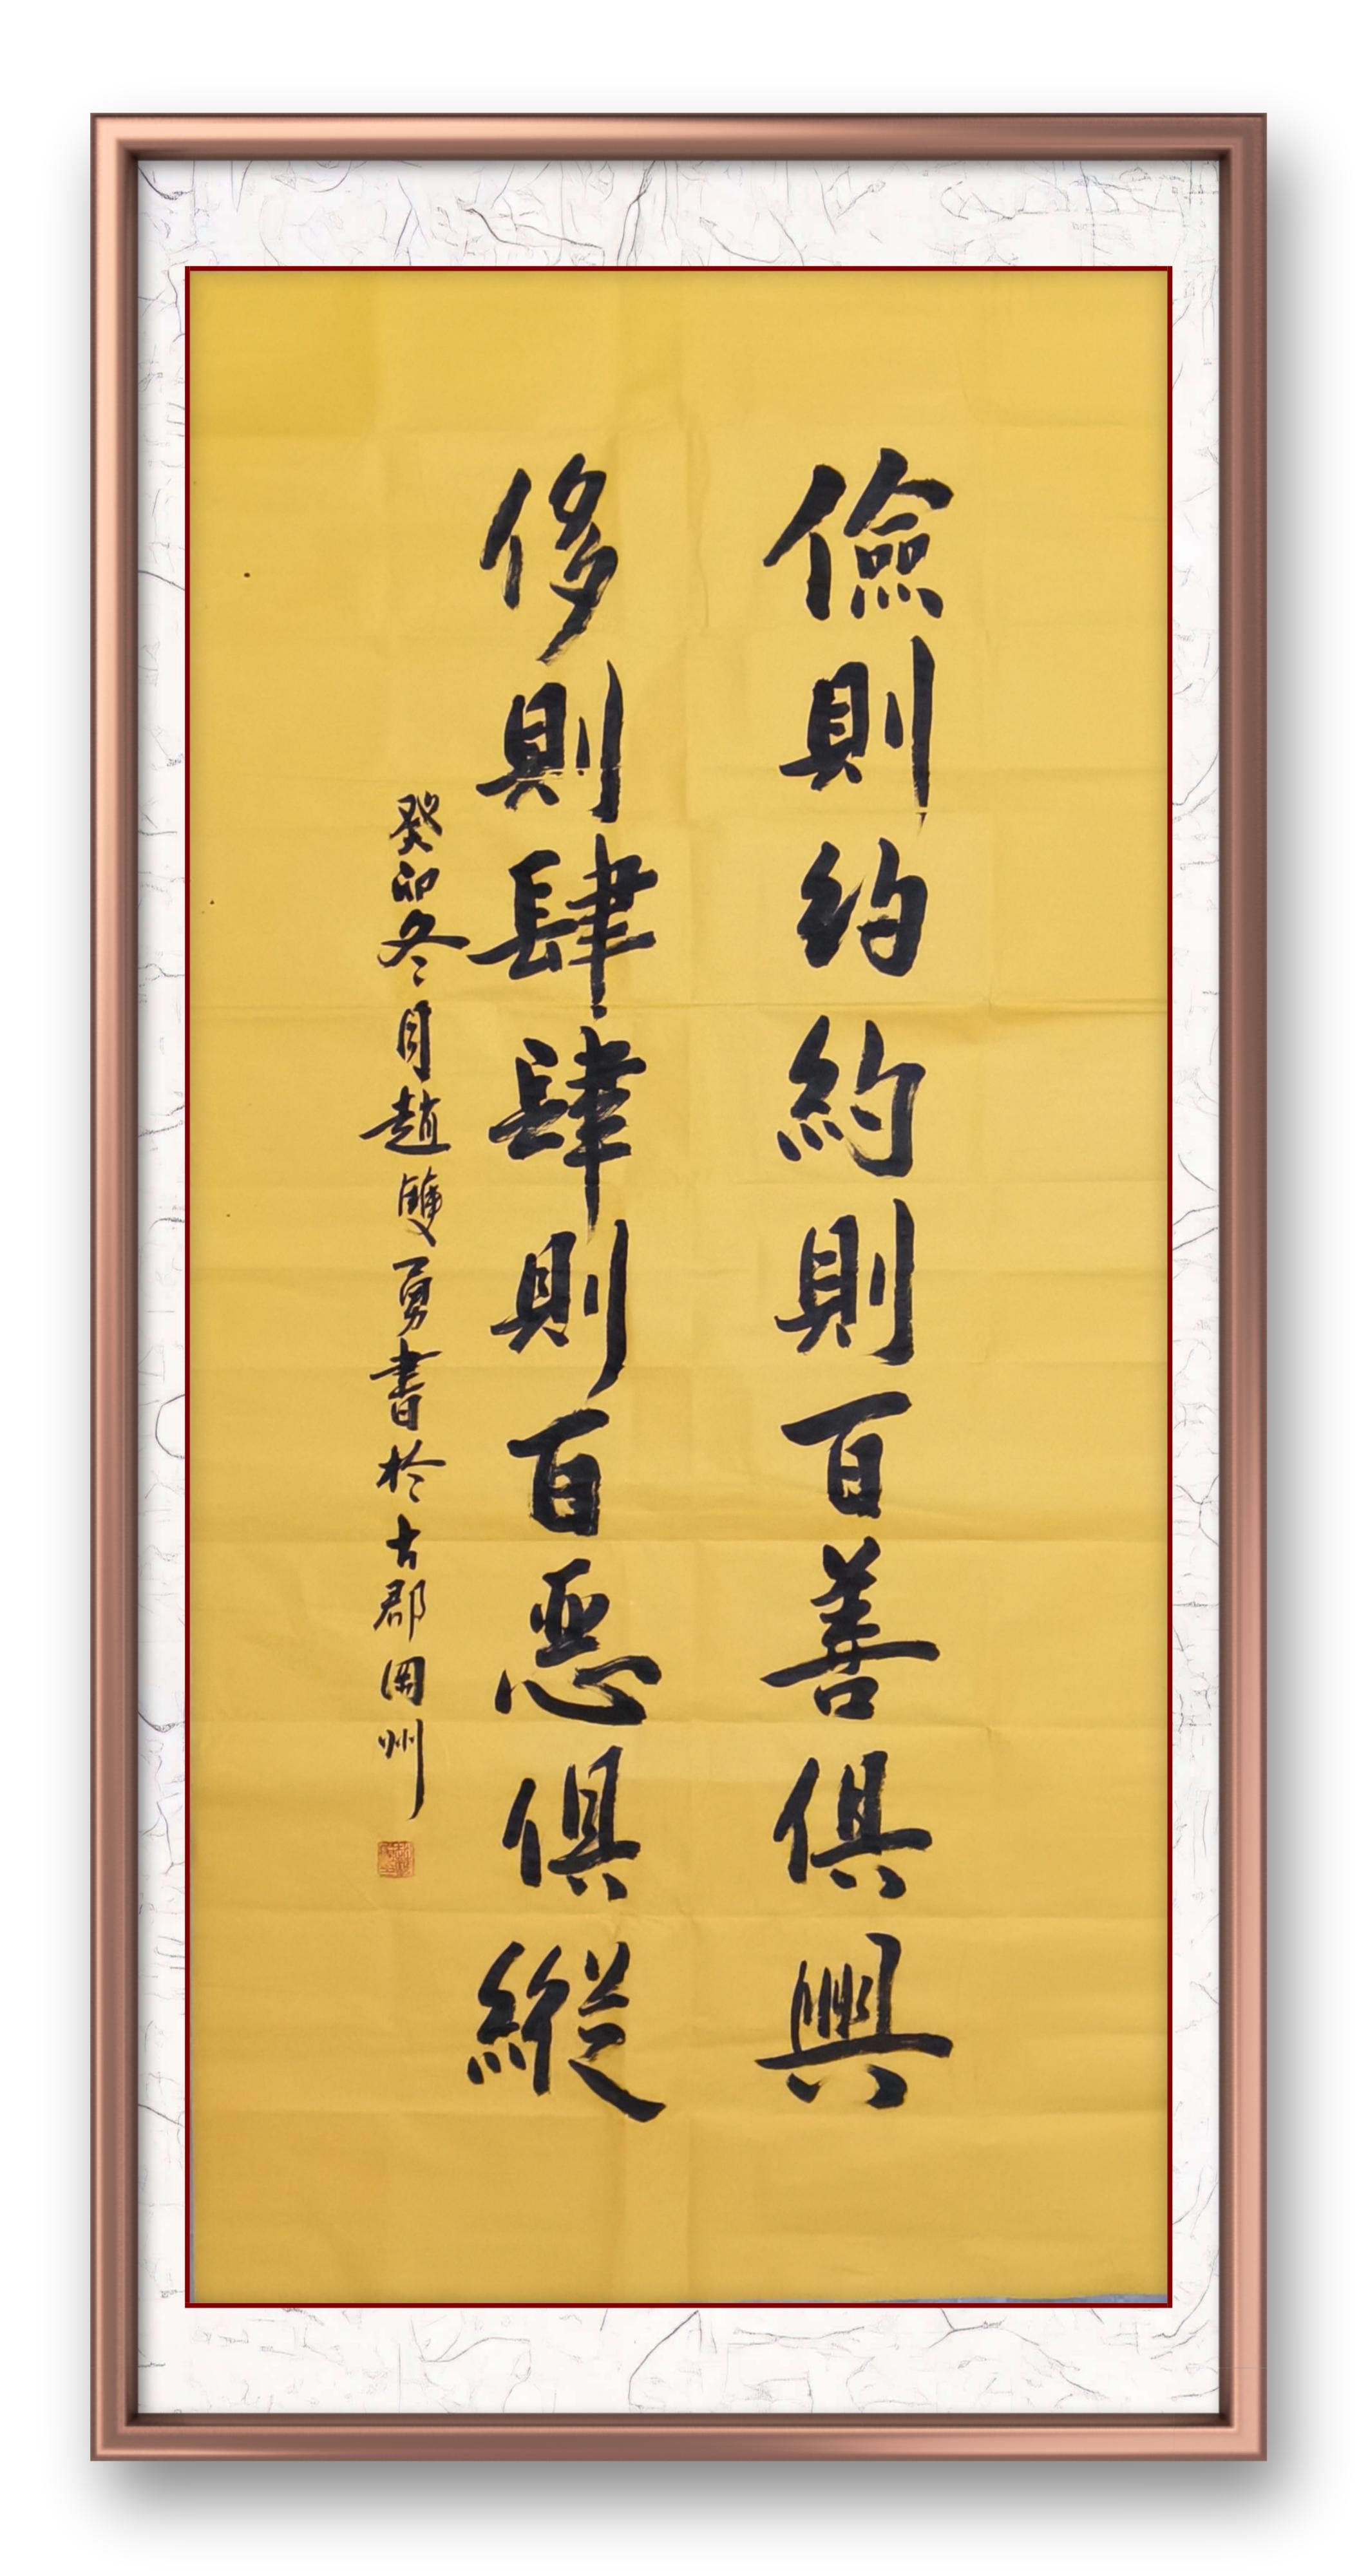 儉則约約則百善俱興
侈則肆肆則百惡俱縱
癸卯冬月趙雙勇書於古郡岡州